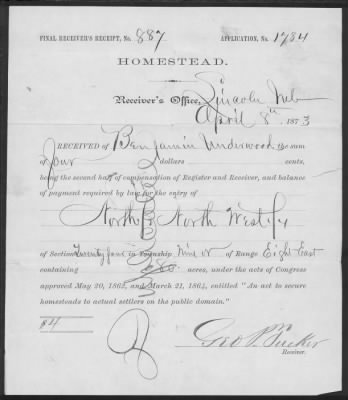 FINAL RECEIVER'S RECEIPT, No. 887 APPLICATION, No. 1784
HOMESTEAD.
Receiver's Office, Lincoln Neb
April 8th 1873
RECEIVED of Benjamin Underwood the sum
of four dollars cents,
being the second half of compensation of Register and Receiver, and balance
of payment required by law for the entry of
North ½ North West ¼
of Section Twenty four in Township Nine N of Range Eight East
containing 80 acres, under the acts of Congress
approved May 20, 1862, and March 21, 1864, entitled "An act to secure
homesteads to actual settlers on the public domain."
$4
Geo. P. Tucker
Receiver.